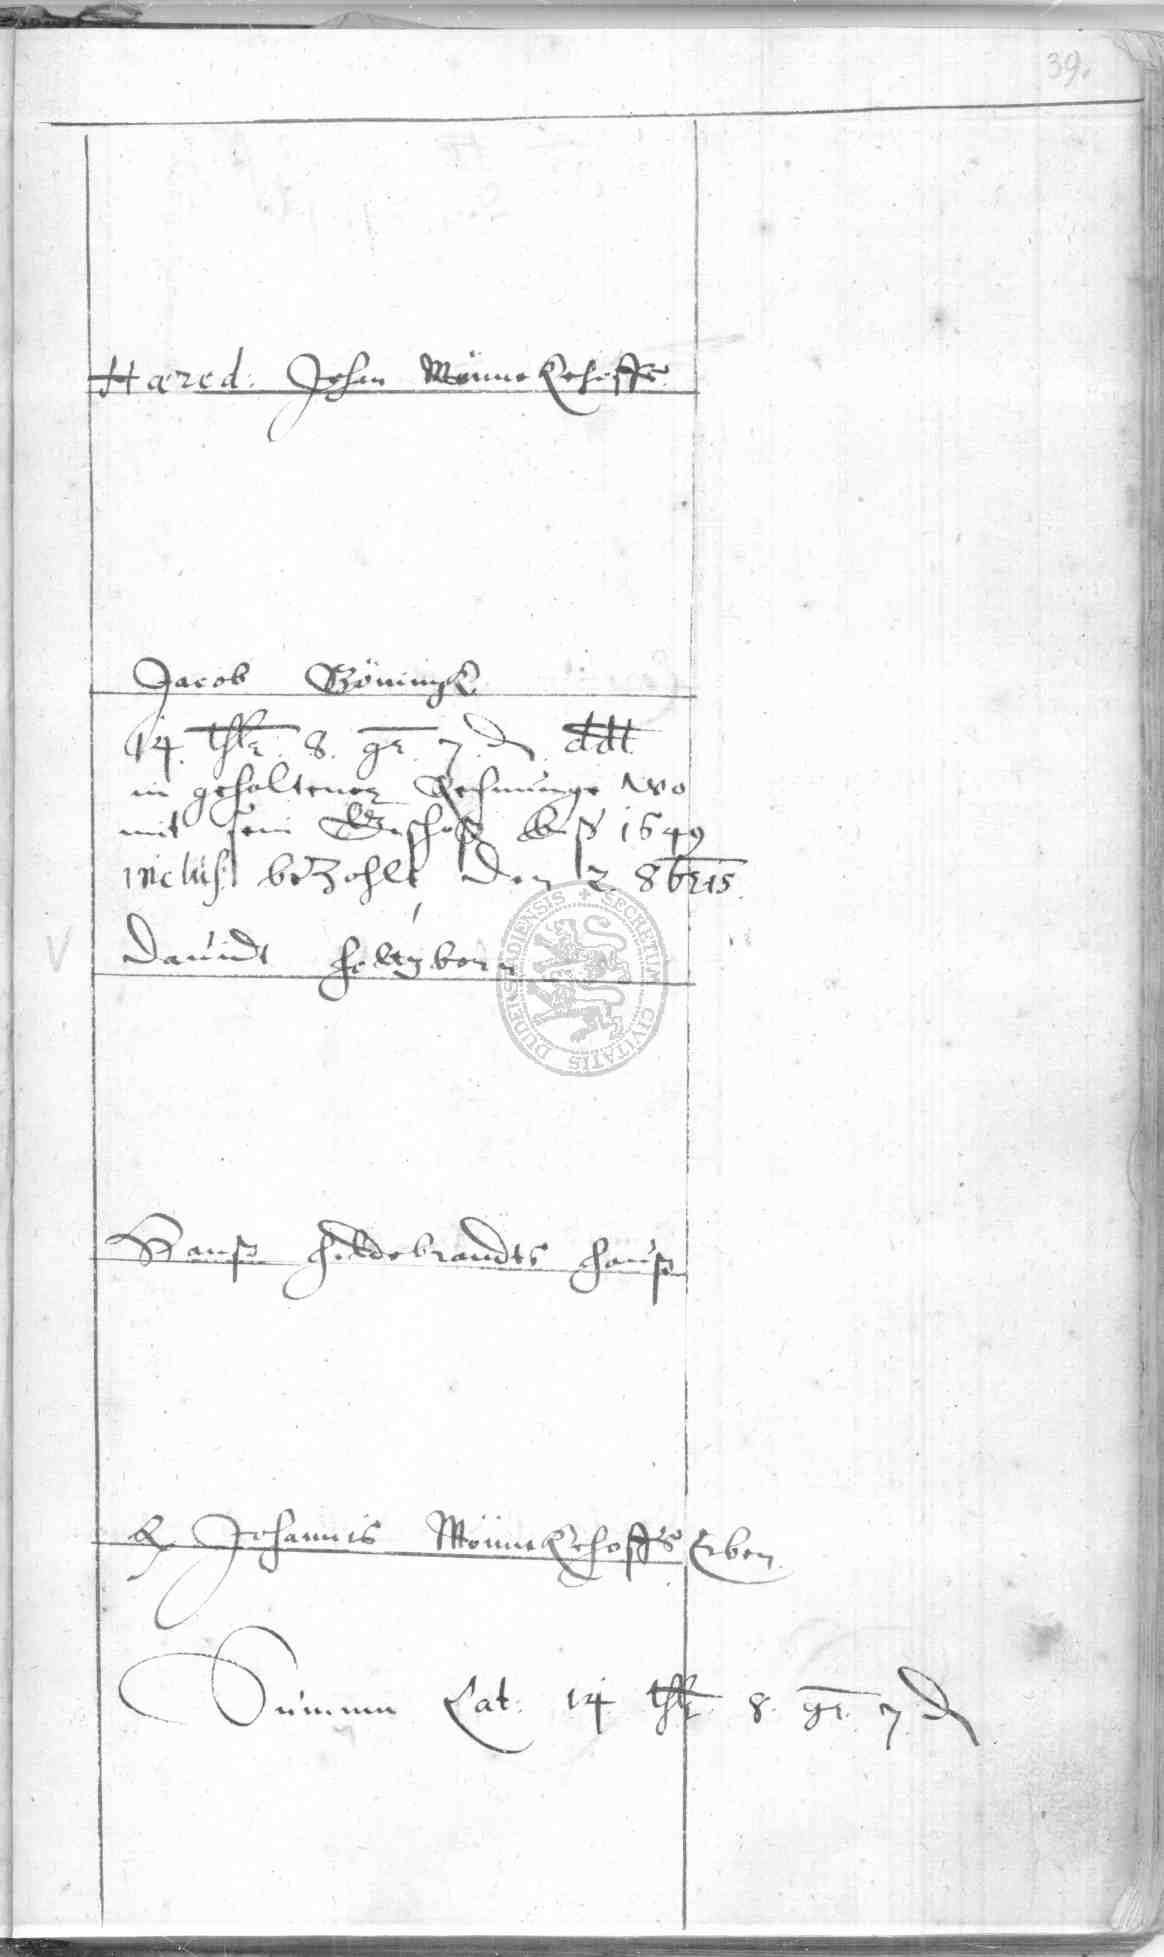 39.
Hæred. Johan Mönnekehoffs
Jacob Böningk
14. thlr. 8. gr. 7. ₰ ddt
in gehaltener Rechnunge wo
mit sein Geschoß biß 1649
inclus. bezohlt den 2. 8bris.
Dauidt holtzborn
Hanß hildebrandts hauß
H. Johannis Mönnekehoffs Erben
Summa Lat. 14 thlr. 8. gr. 7. ₰
SECRETUM CIVITATIS DUDERSTADIENSIS